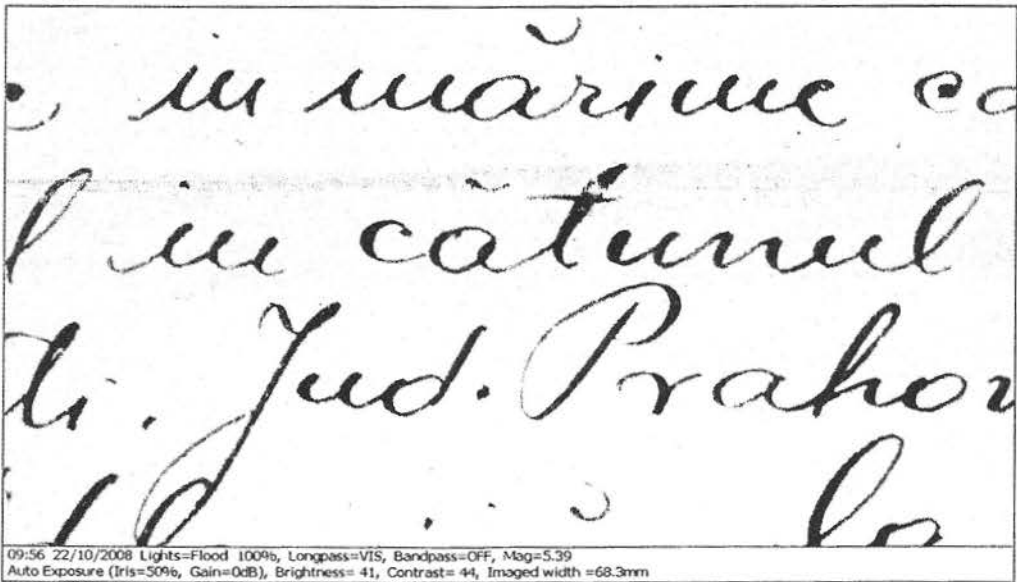 in mărime
in cătunul
Jud. Prahov
09:56 22/10/2008 Lights=Flood 100%, Longpass=VIS, Bandpass=OFF, Mag=5.39
Auto Exposure (Iris=50%, Gain=0dB), Brightness= 41, Contrast= 44, Imaged width =68.3mm